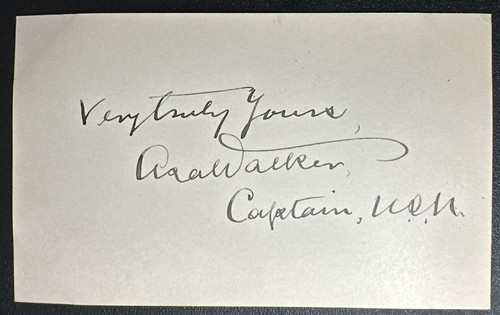 Very truly Yours,
Asa Walker,
Captain, U.S.N.